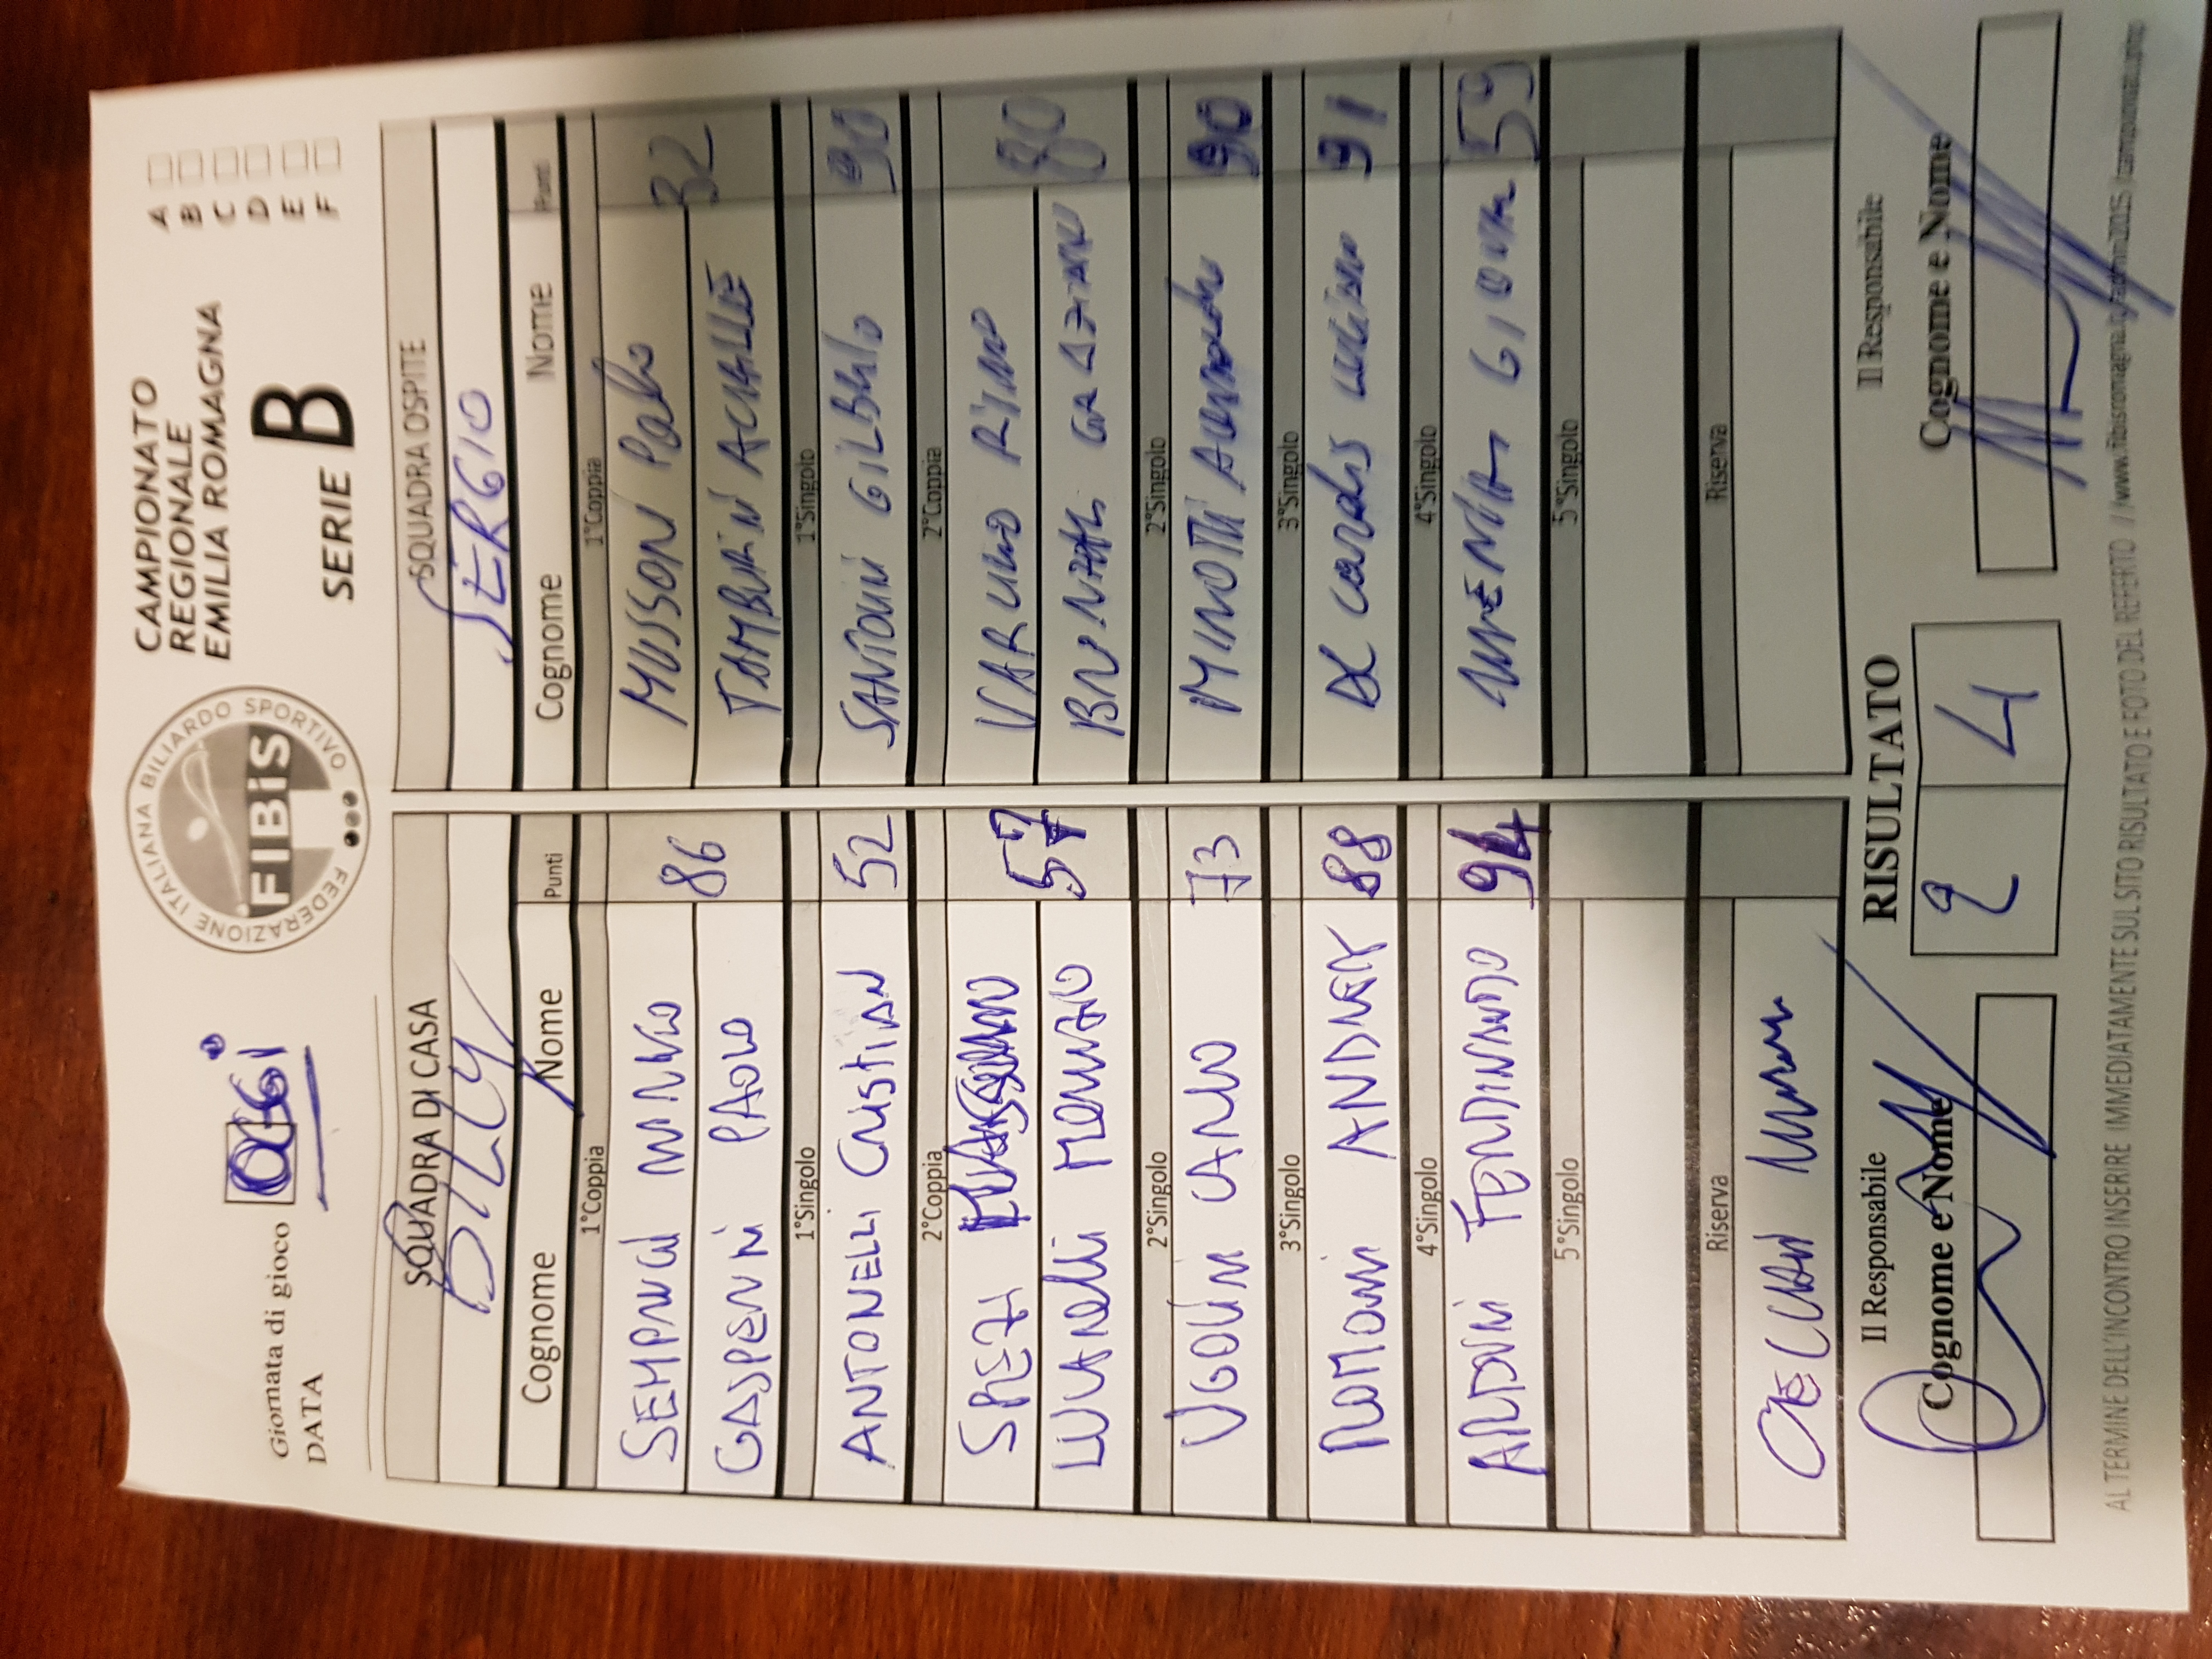 CAMPIONATO
REGIONALE
EMILIA ROMAGNA
SERIE B
A
B
C
D
E
F
FEDERAZIONE ITALIANA BILIARDO SPORTIVO
FIBiS
Giornata di gioco OGGI
DATA
SQUADRA DI CASA SQUADRA OSPITE
BILLY SERGIO
Cognome Nome Punti Cognome Nome Punti
1°Coppia 1°Coppia
SEMPRUCCI 86 MUSSONI Paolo 32
GASPERINI PAOLO TAMBURINI ACHILLE
1°Singolo 1°Singolo
ANTONELLI CRISTIAN 52 SANTOLINI GILBERTO 90
2°Coppia 2°Coppia
57 RINO 80
LUCARELLI GRAZIANO
2°Singolo 2°Singolo
UGOLINI CARLO 73 MINOTTI 90
3°Singolo 3°Singolo
ANDREA 88 DE 91
4°Singolo 4°Singolo
ARDINI FERDINANDO 94 59
5°Singolo 5°Singolo
Riserva Riserva
Il Responsabile RISULTATO Il Responsabile
Cognome e Nome 2 4 Cognome e Nome
AL TERMINE DELL'INCONTRO INSERIRE IMMEDIATAMENTE SUL SITO RISULTATO E FOTO DEL REFERTO